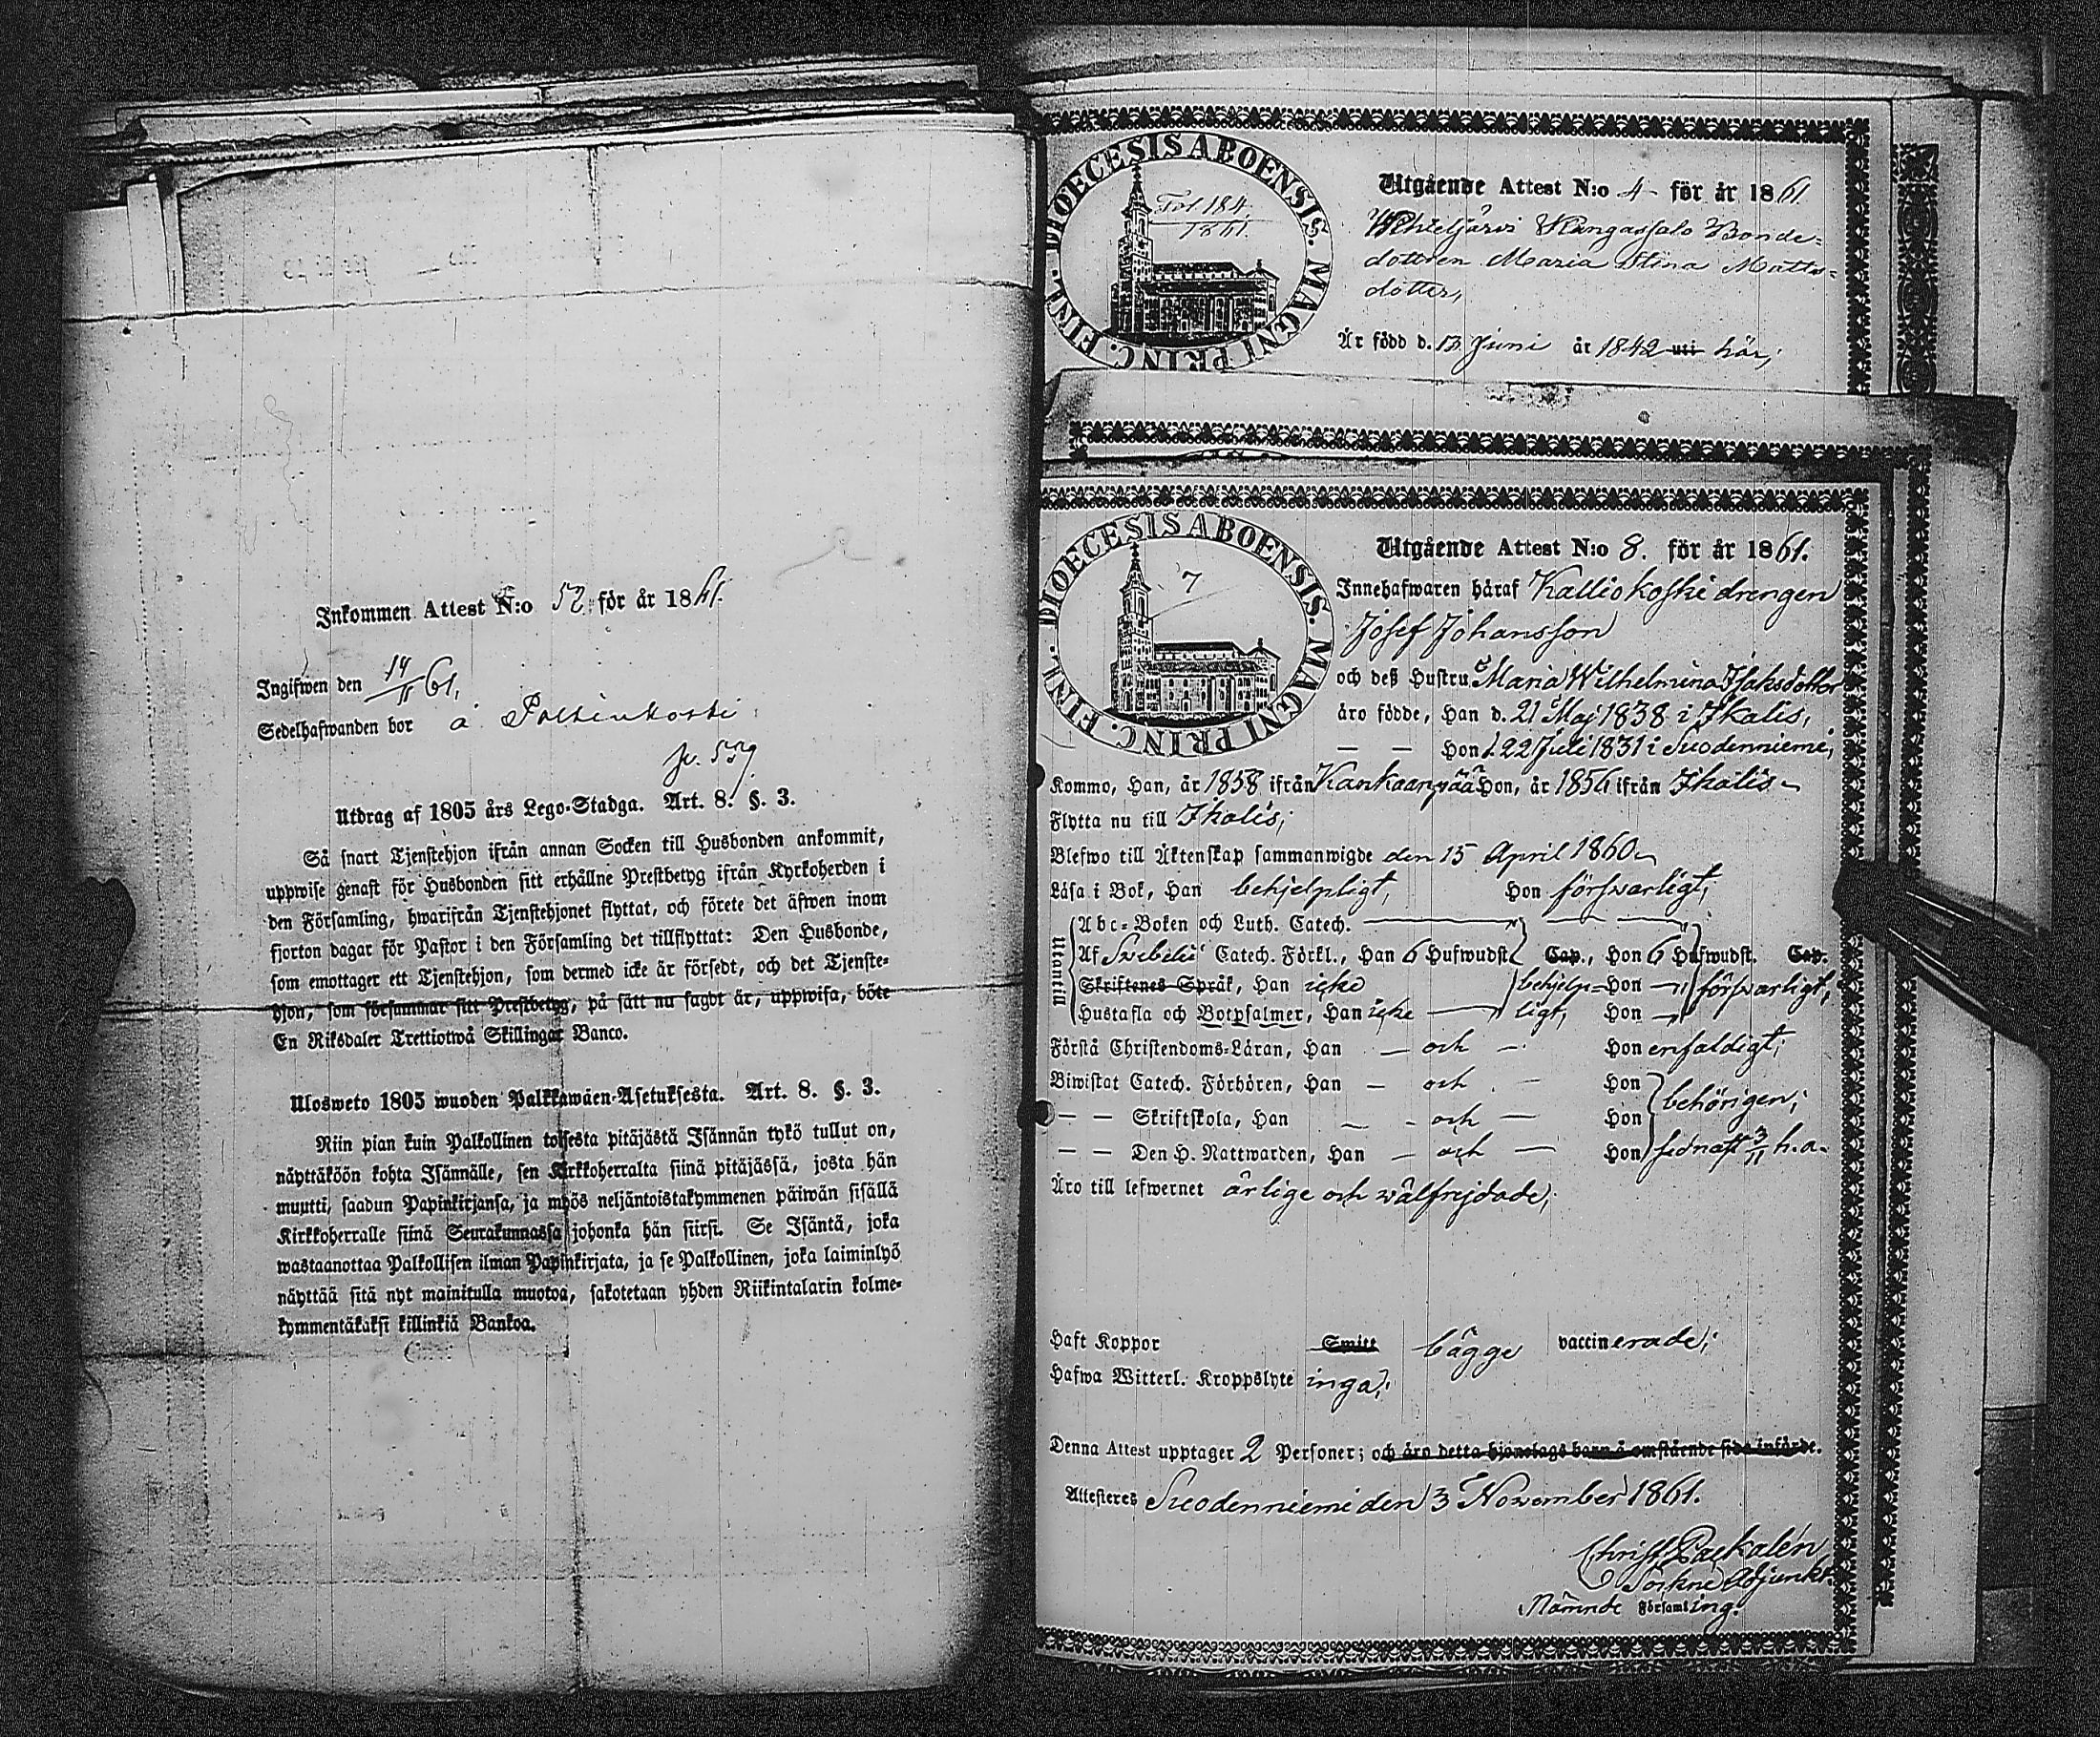 Inkommen Attest N:o 52. för år 1861.
Ingifwen den 14/11 61.
Sedelhafwanden bor å
Utdrag af 1805 års Lego-Stadga. Art. 8. §. 3.
Så snart Tjenstehjon ifrån annan Socken till Husbonden ankommit,
uppwise genast för Husbonden sitt erhållne Prestbetyg ifrån Kyrkoherden i
den Församling, hwarifrån Tjenstehjonet flyttat, och förete det äfwen inom
fjorton dagar för Pastor i den Församling det tillflyttat: Den Husbonde,
som emottager ett Tjenstehjon, som dermed icke är försedt, och det Tjenste-
hjon, som försummar sitt Prestbetyg, på sätt nu sagdt är, uppwisa, böte
En Riksdaler Trettiotwå Skillingar Banco.
Ulosweto 1805 wuoden Palkkawäen-Asetuksesta. Art. 8. §. 3.
Niin pian kuin Palkollinen toisesta pitäjästä Isännän tykö tullut on,
näyttäköön kohta Isännälle, sen Kirkkoherralta siinä pitäjässä, josta hän
muutti, saadun Papinkirjansa, ja myös neljäntoistakymmenen päiwän sisällä
Kirkkoherralle siinä Seurakunnassa johonka hän siirsi. Se Isäntä, joka
wastaanottaa Palkollisen ilman Papinkirjata, ja se Palkollinen, joka laiminlyö
näyttää sitä nyt mainitulla muotoa, sakotetaan yhden Riikintalarin kolme-
kymmentäkaksi killinkiä Bankoa.
DIOECESIS ABOENSIS. MAGNI PRINC. FINL.
Fol 184
Utgående Attest N:o 4 för år 1861
Kangassalo Bonde-
dottren Maria Stina Matts-
dotter,
Är född d. 13 Juni år 1842 uti här;
DIOECESIS ABOENSIS. MAGNI PRINC. FINL.
7
Utgående Attest N:o 8. för år 1861.
Innehafwaren häraf Kalliokoski drengen
Josef Johansson
och deß Hustru Maria Wilhelmina Isaksdotter
äro födde, Han d. 21 Maj 1838 i Ikalis,
— — Hon d. 22 Juli 1831 i Suodenniemi,
Kommo, Han, år 1858 ifrån Kankaanpää Hon, år 1856 ifrån Ikalis
Flytta nu till Ikalis;
Blefwo till Äktenskap sammanwigde den 15 April 1860
Läsa i Bok, Han behjelpligt, Hon förswarligt;
Utantill
Abc-Boken och Luth. Catech.
Af Svebelii Catech. Förkl., Han 6 Hufwudst. Cap., Hon 6 Hufwudst. Cap.
Skriftenes Språk, Han icke behjelp- Hon — förswarligt;
Hustafla och Botpsalmer, Han icke — ligt, Hon —
Förstå Christendoms-Läran, Han — och — Hon enfaldigt;
Biwistat Catech. Förhören, Han — och — Hon behörigen;
— — Skriftskola, Han — och — Hon
— — Den H. Nattwarden, Han — och — Hon sednast 3/11 h.a.
Äro till lefwernet ärlige och wälfrejdade;
Haft Koppor Smitt bägge vaccinerade;
Hafwa Witterl. Kroppslyte inga;
Denna Attest upptager 2 Personer; och äro detta hjonelags barn å omstående sida införde.
Attesteres Suodenniemi den 3 November 1861.
Christ. Packalén
Sockne Adjunkt.
Nämnde Församling.